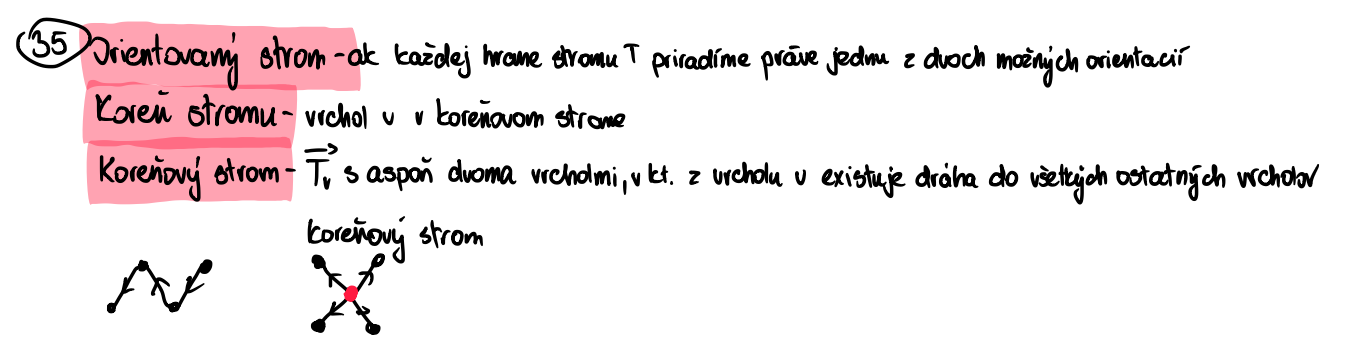 35 Orientovaný strom - ak každej hrane stromu T priradíme práve jednu z dvoch možných orientacií
Koreň stromu - vrchol v v koreňovom strome
Koreňový strom - T⃗ᵥ s aspoň dvoma vrcholmi, v kt. z vrcholu v existuje dráha do všetkých ostatných vrcholov
koreňový strom